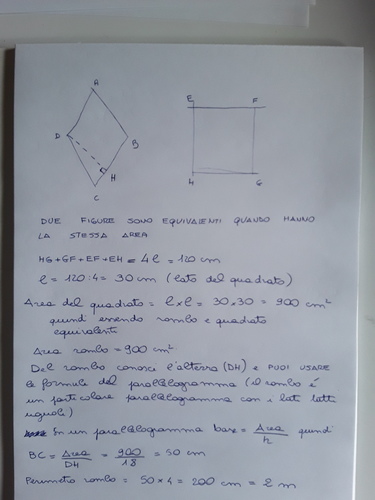 A
D
B
H
C
E F
H G
DUE FIGURE SONO EQUIVALENTI QUANDO HANNO
LA STESSA AREA
HG+GF+EF+EH = 4l = 120 cm
l = 120:4 = 30 cm (lato del quadrato)
Area del quadrato = l x l = 30x30 = 900 cm²
quindi essendo rombo e quadrato
equivalenti
Area rombo = 900 cm²
Del rombo conosci l'altezza (DH) e PUOI USARE
le formule del parallelogramma (il rombo è
un particolare parallelogramma con i lati tutti
uguali)
In un parallelogramma base = Area/h quindi
BC = Area/DH = 900/18 = 50 cm
Perimetro rombo = 50x4 = 200 cm = 2 m